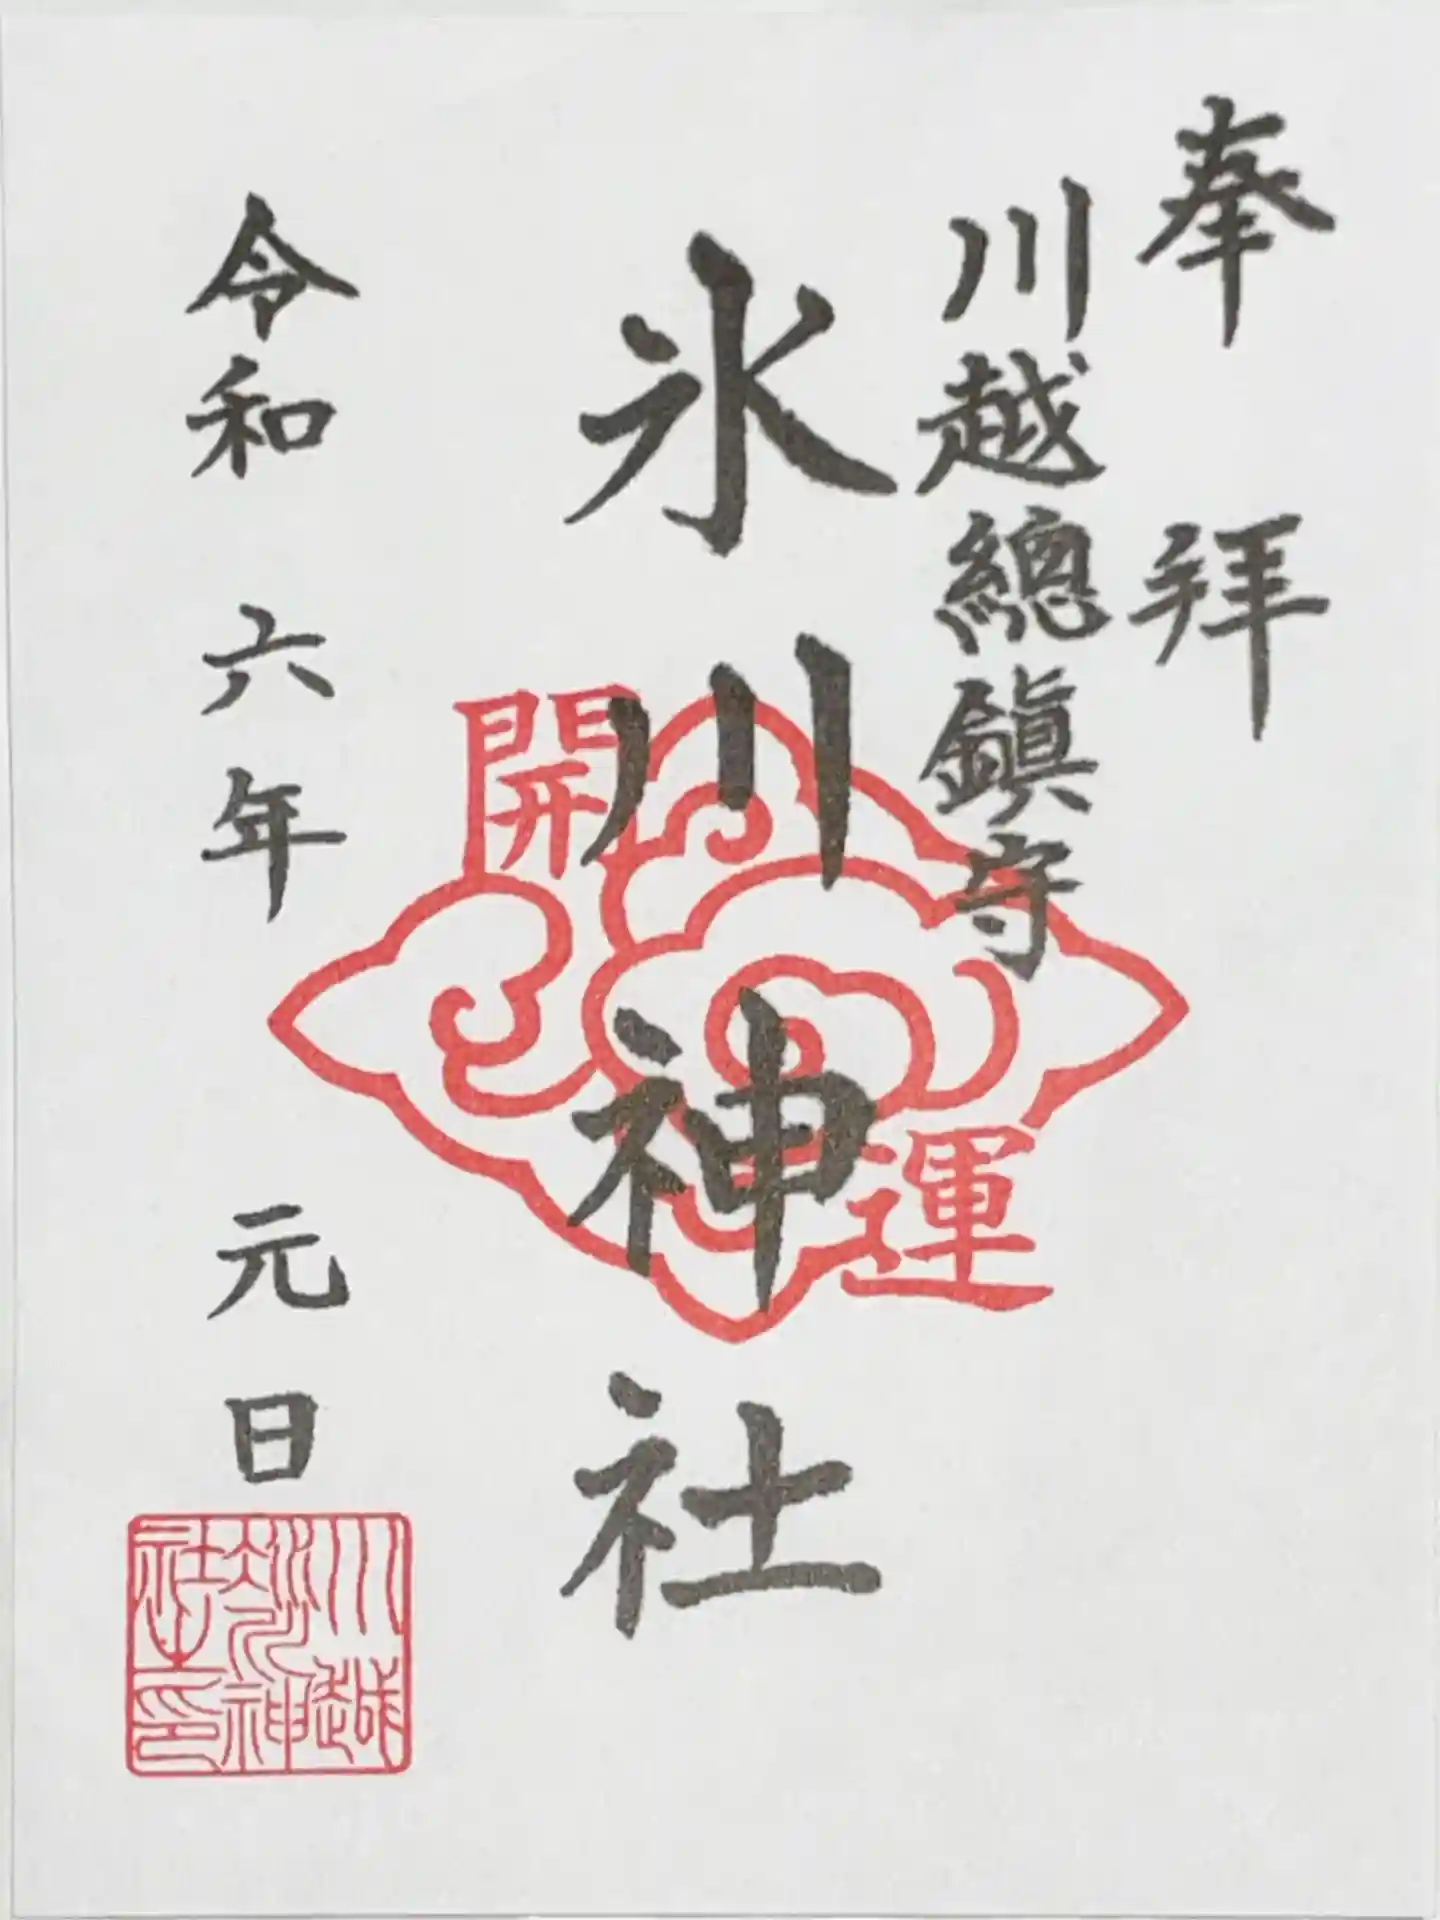 奉拝
川越總鎮守
氷川神社
開運
令和六年元日
川越
氷川神
社之印